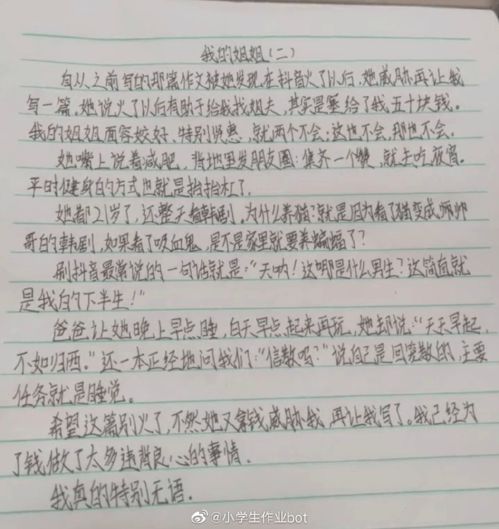 我的姐姐(二)
自从之前写的那篇作文被她发现在抖音火了以后,她威胁再让我
写一篇,她说火了以后有助于给我找姐夫,其实是塞给了我五十块钱。
我的姐姐面容姣好、特别贤惠,就两个不会:这也不会,那也不会。
她嘴上说着减肥,背地里发朋友圈:集齐一个赞,就去吃夜宵。
平时健身的方式也就是抬抬杠了。
她都21岁了,还整天看韩剧,为什么养猫?就是因为看了猫变成帅帅
哥的韩剧,如果看了吸血鬼,是不是家里就要养蝙蝠了?
刷抖音最常说的一句话就是:“天呐!这哪是什么男生?这简直就
是我的下半生!”
爸爸让她晚上早点睡,白天早点起来再玩,她却说:“天天早起,
不如归西。”还一本正经地问我们:“信教吗?”说自己是回笼教的,主要
任务就是睡觉。
希望这篇别火了,不然她又拿钱威胁我,再让我写了。我已经为
了钱做了太多违背良心的事情.
我真的特别无语.
@小学生作业bot